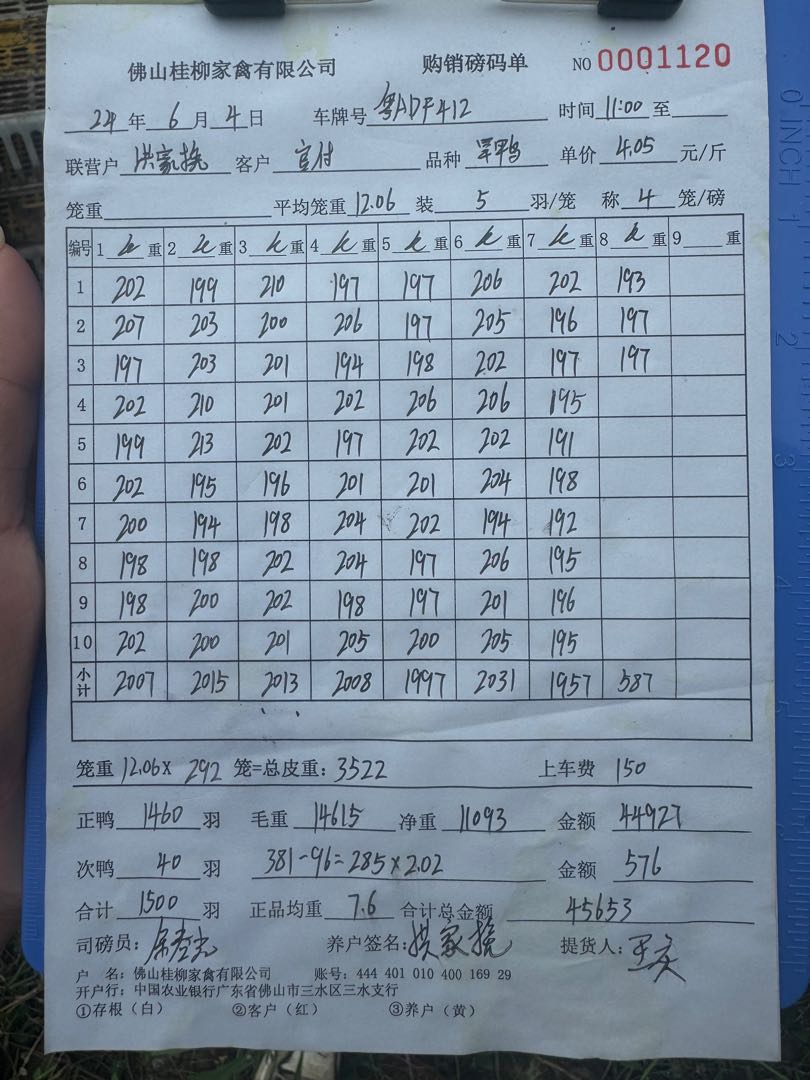 佛山桂柳家禽有限公司 购销磅码单 NO 0001120
24年6月4日 车牌号粤ADF412 时间11:00至
联营户洪家挽 客户 品种 单价4.05元/斤
笼重 平均笼重12.06 装5羽/笼 称4笼/磅
编号 1 重 2 重 3 重 4 重 5 重 6 重 7 重 8 重 9 重
1 202 199 210 197 197 206 202 193
2 207 203 200 206 197 205 196 197
3 197 203 201 194 198 202 197 197
4 202 210 201 202 206 206 195
5 199 213 202 197 202 202 191
6 202 195 196 201 201 204 198
7 200 194 198 204 202 194 192
8 198 198 202 204 197 206 195
9 198 200 202 198 197 201 196
10 202 200 201 205 200 205 195
小计 2007 2015 2013 2008 1997 2031 1957 587
笼重12.06X 292笼=总皮重:3522 上车费 150
正鸭1460羽 毛重14615 净重11093 金额44927
次鸭40羽 381-96=285×2.02 金额576
合计1500羽 正品均重7.6 合计总金额45653
司磅员: 养户签名:洪家挽 提货人:
户 名:佛山桂柳家禽有限公司 账号:444 401 010 400 169 29
开户行:中国农业银行广东省佛山市三水区三水支行
①存根(白) ②客户(红) ③养户(黄)
0 INCH 1 2 3 4 5